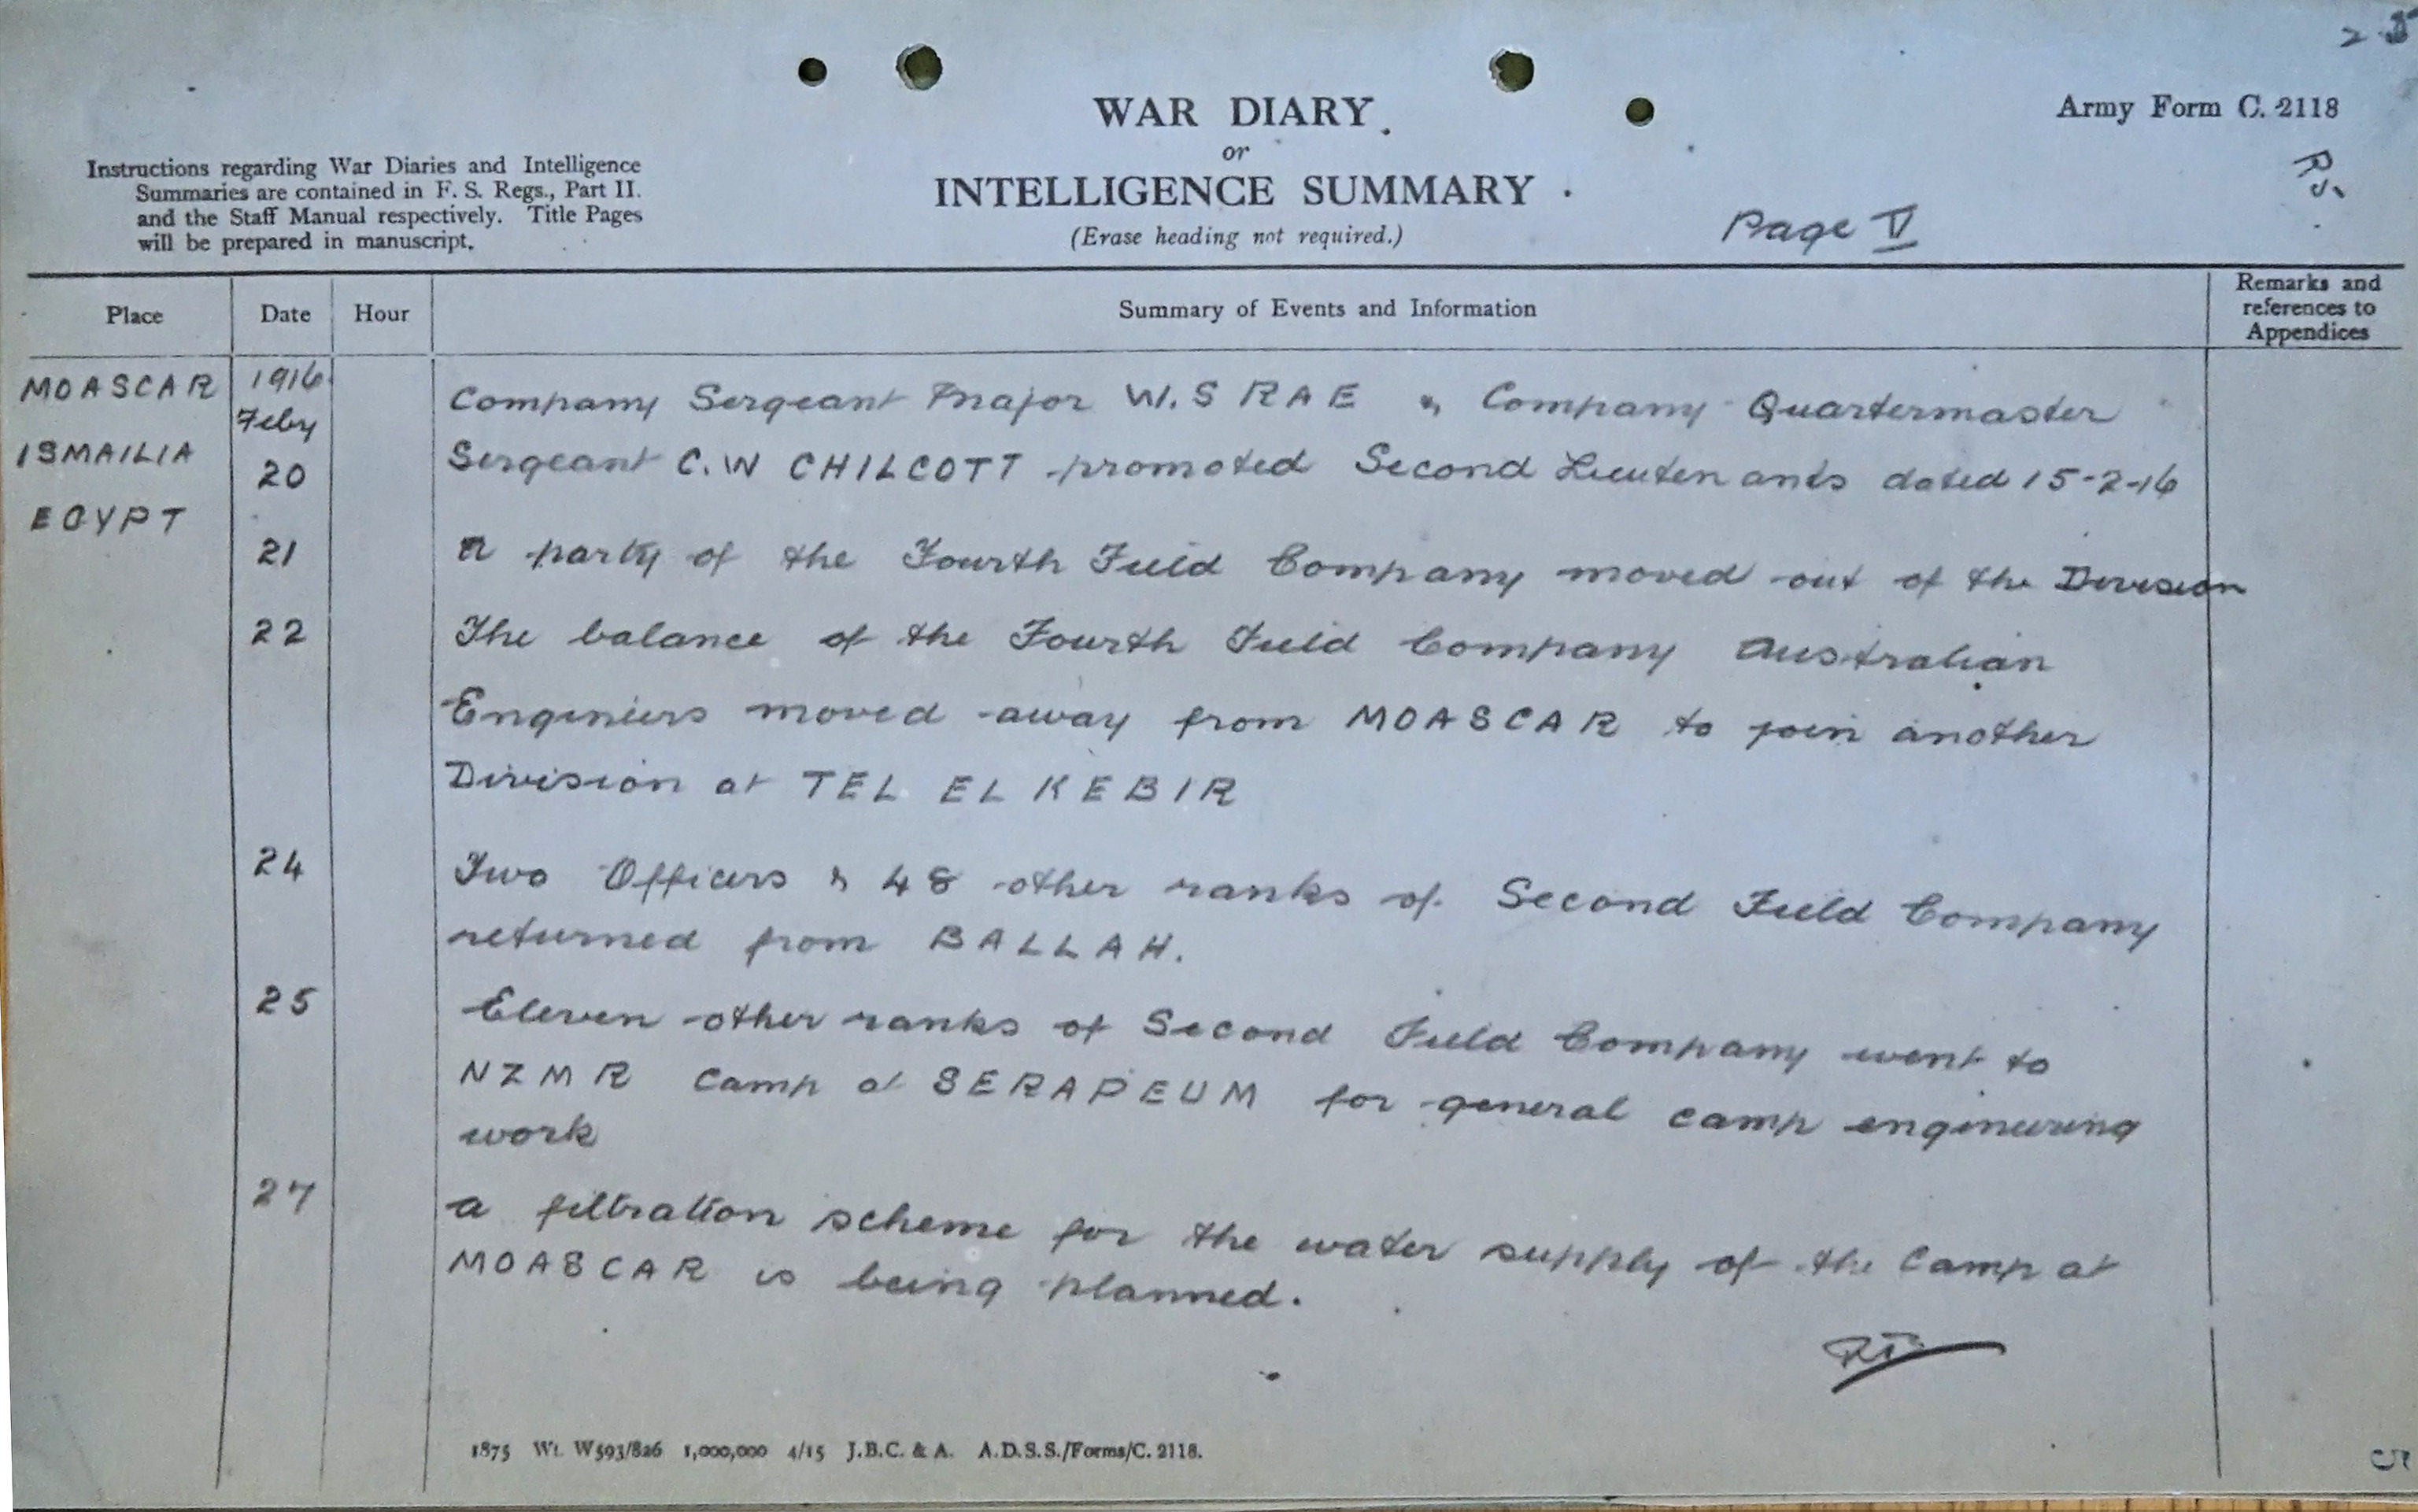 Army Form C. 2118
WAR DIARY
or
INTELLIGENCE SUMMARY
(Erase heading not required.)
Instructions regarding War Diaries and Intelligence
Summaries are contained in F. S. Regs., Part II.
and the Staff Manual respectively. Title Pages
will be prepared in manuscript.
Page V
Place Date Hour Summary of Events and Information Remarks and references to Appendices
MOASCAR 1916
Feby
ISMAILIA
EGYPT
20 Company Sergeant Major W.S RAE & Company Quartermaster
Sergeant C.W CHILCOTT promoted Second Lieutenants dated 15-2-16
21 A party of the Fourth Field Company moved out of the Division
22 The balance of the Fourth Field Company Australian
Engineers moved away from MOASCAR to join another
Division at TEL EL KEBIR
24 Two Officers & 48 other ranks of Second Field Company
returned from BALLAH.
25 Eleven other ranks of Second Field Company went to
NZMR Camp at SERAPEUM for general camp engineering
work
27 a filtration scheme for the water supply of the Camp at
MOASCAR is being planned.
1875 Wt. W593/826 1,000,000 4/15 J.B.C. & A. A.D.S.S./Forms/C. 2118.
5